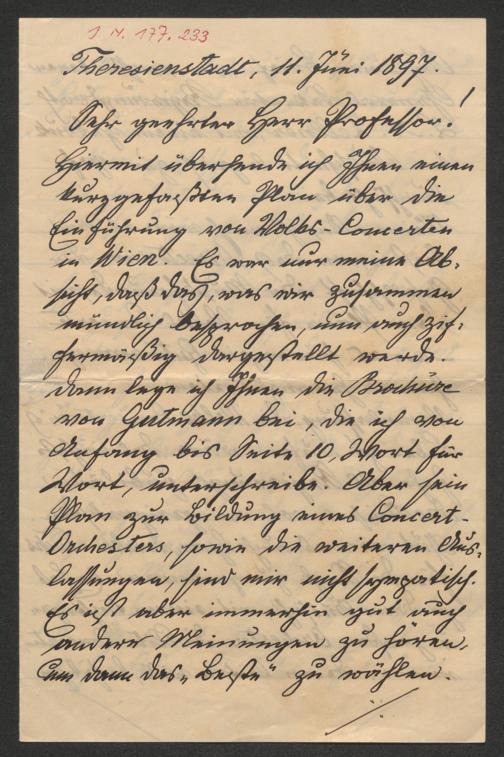 1 N. 177.233
Theresienstadt, 11. Juni 1897.
Sehr geehrter Herr Professor!
Hiermit übersende ich Ihnen einen
kurzgefaßten Plan über die
Einführung von Volks-Concerten
in Wien. Es war nur meine Ab-
sicht, daß das, was wir zusammen
mündlich besprochen, nun auch zif-
fermäßig dargestellt werde.
Dann lege ich Ihnen die Brochüre
von Gutmann bei, die ich von
Anfang bis Seite 10, Wort für
Wort, unterschreibe. Aber sein
Plan zur Bildung eines Concert-
Orchesters, sowie die weiteren Aus-
lassungen, sind mir nicht sympatisch.
Es ist aber immerhin gut auch
andere Meinungen zu hören,
um dann das „Beste“ zu wählen.